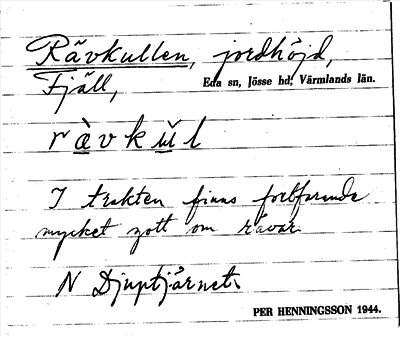 Rävkullen, jordhöjd,
Fjäll, Eda sn, Jösse hd, Värmlands län.
ràvkŭl
I trakten finns fortfarande
mycket gott om rävar.
N Djuptjärnet.
PER HENNINGSSON 1944.